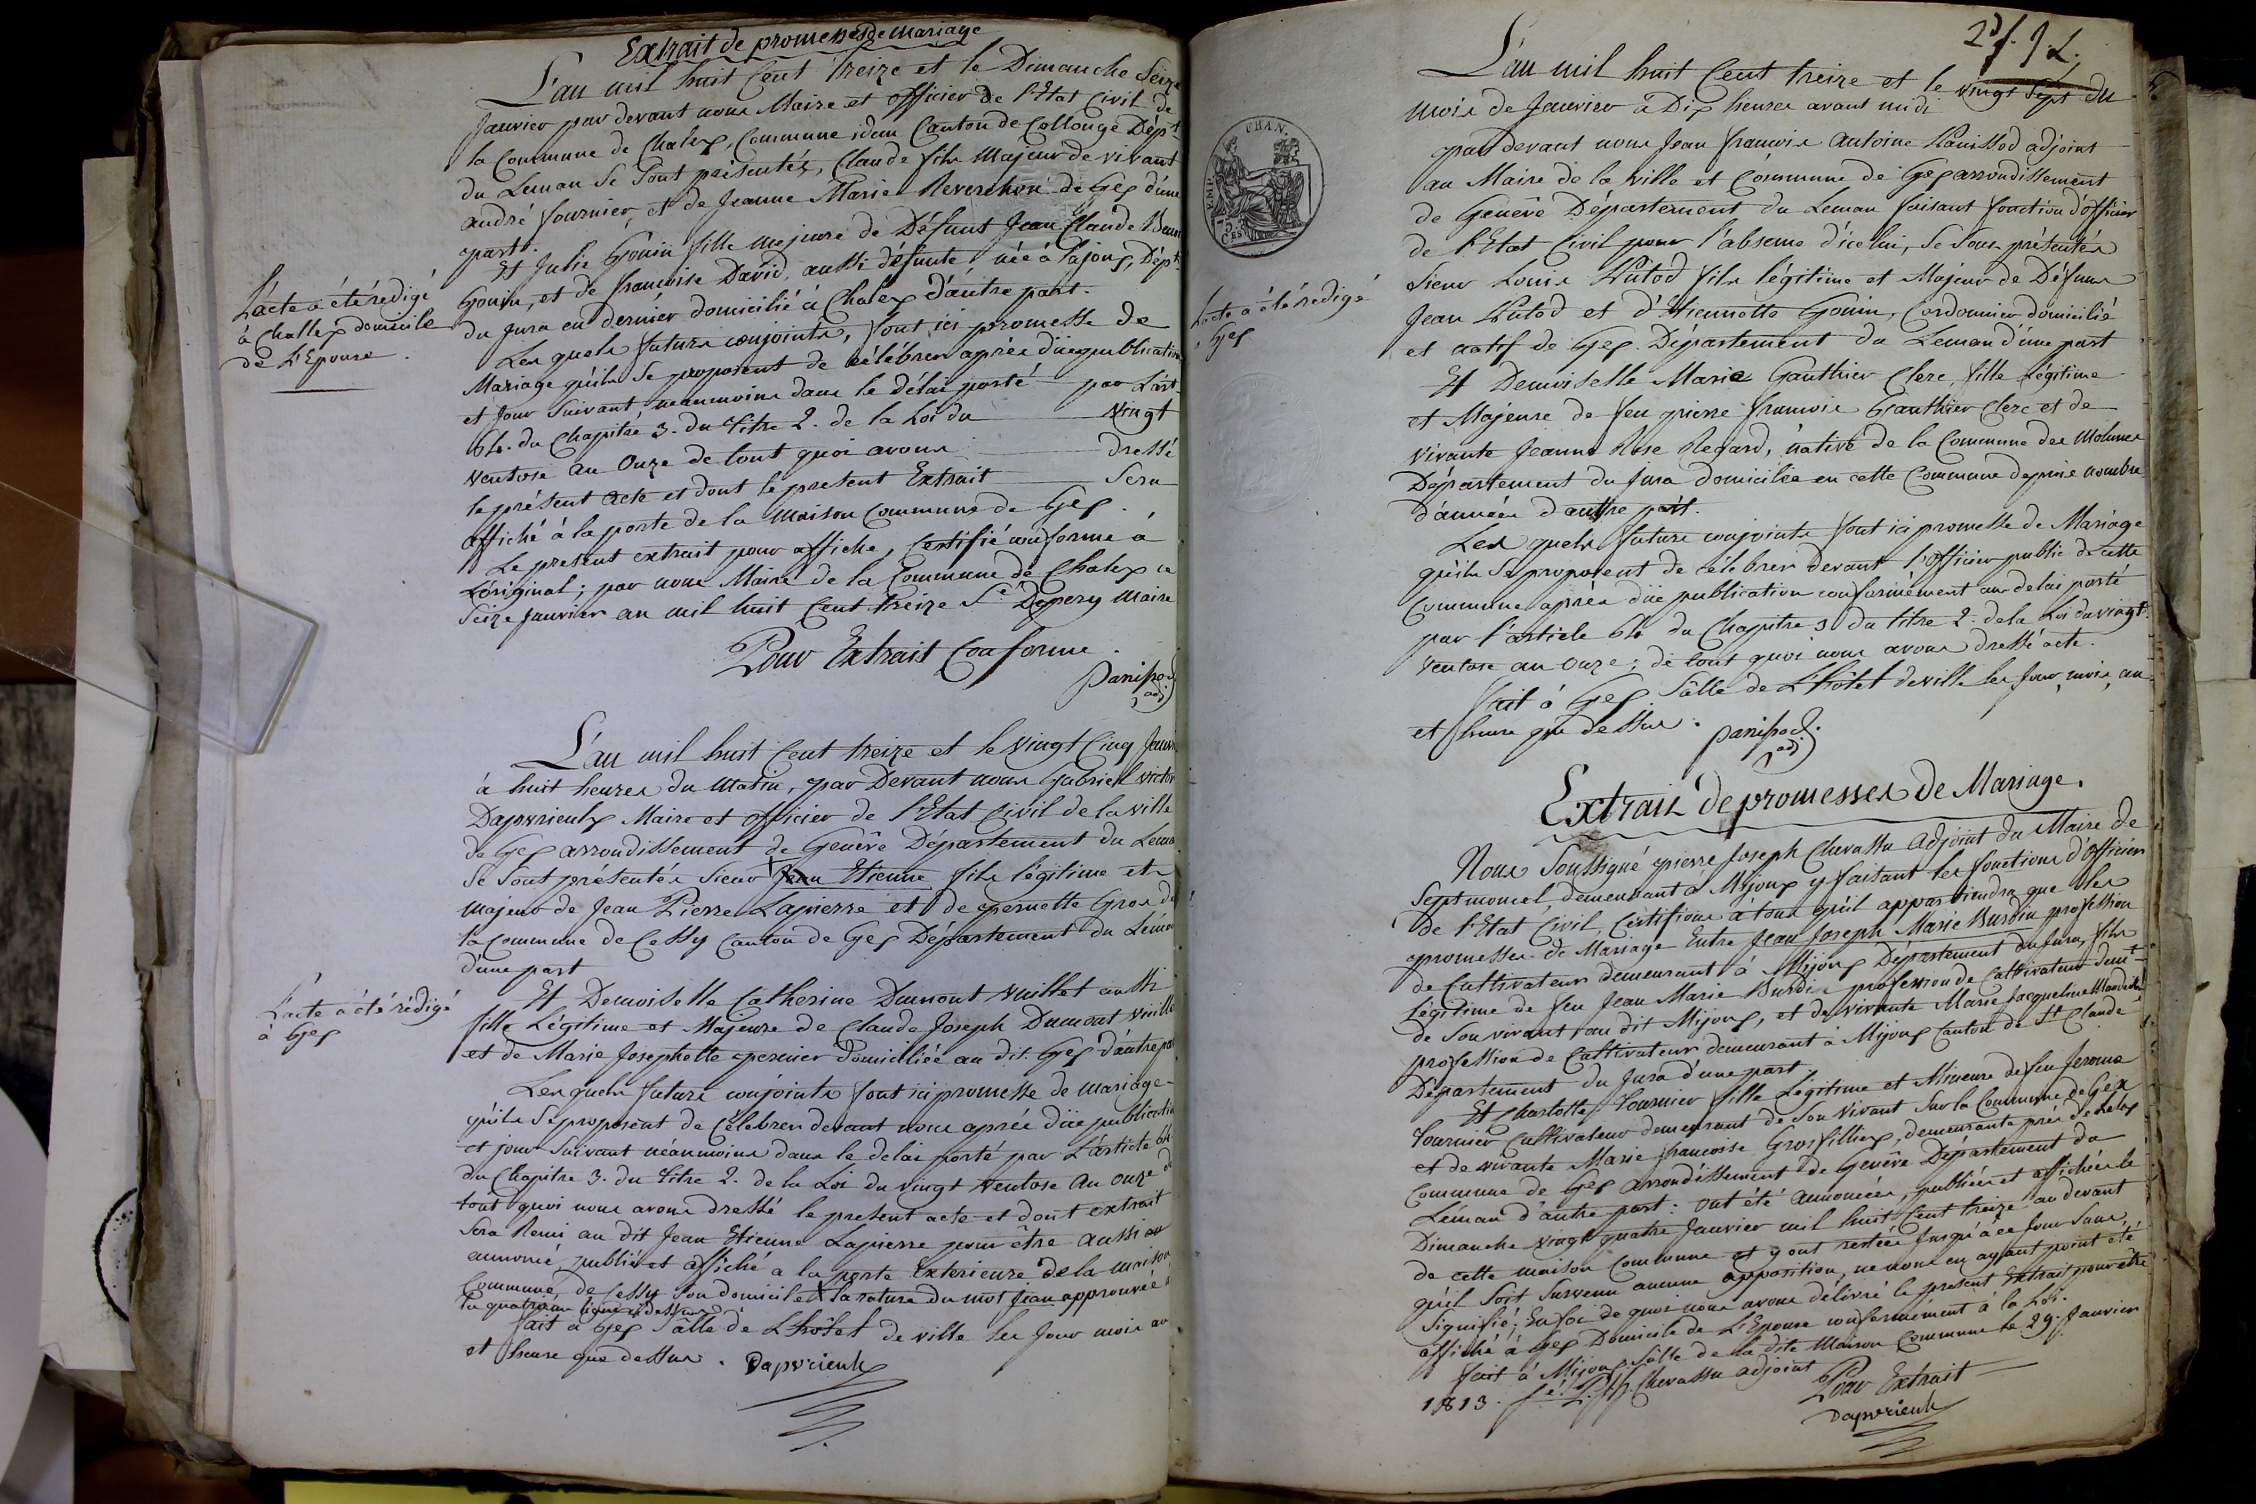 Extrait de promesses de mariage
L'an mil huit Cent treize et le Dimanche Seize
Janvier par devant nous Maire et officier de l'Etat Civil de
la Commune de Chalex, Commune idem Canton de Collonge Dépt
du Leman se sont présentés, Claude fils Majeur de vivant
andré fournier, et de Jeanne Marie Reverchon de Gex d'une
part.
Et Julie Gonin fille majeure de Défunt Jean Claude
Gonin, et de francoise David, aussi défunte, née à Lajoux, Dépt
du Jura en dernier domicilié à Chalex d'autre part.
Les quels futurs conjoints, font ici promesse de
Mariage qu'ils se proposent de célébrer après düe publication
et jour Suivant, néanmoins dans le délai porté par L'art
64. du Chapitre 3. du Titre 2. de la Loi du Vingt
Ventose an Onze de tout quoi avons dressé
le présent acte et dont le présent Extrait Sera
affiché à la porte de la Maison Commune de Gex.
Le présent extrait pour affiche, Certifié conforme à
L'original; par nous Maire de la Commune de Chalex ce
Seize Janvier an mil huit Cent treize Sé Dépery Maire
Pour Extrait Conforme.
panissod
adj
L'acte a été redigé
à Challex domicile
de L'Epouse.
L'an mil huit Cent treize et le Vingt Cinq Janvi
à huit heures du Matin, par Devant nous Gabriel Victor
Dapvrieulx Maire et officier de l'Etat Civil de la ville
de Gex arrondissement de Genêve Département du Lema
Se Sont présentés Sieur Jean Etienne fils légitime et
majeur de Jean Pierre Lapierre et de pernette Gros de
la Commune de Cessy Canton de Gex Département du Léman
d'une part
Et Demoiselle Catherine Dumont Vuillet aussi
fille Légitime et Majeure de Claude Joseph Dumont Vuille
et de Marie Josephette pernier Domiciliée au dit Gex d'autre par
Lesquels futurs conjoints font ici promesse de mariage
qu'ils Se proposent de Célébrer devant nous après düe publicatio
et jour Suivant néanmoins dans le delai porté par L'article 64
du Chapitre 3. du Titre 2. de la Loi du vingt Ventose an Onze de
tout quoi nous avons dressé le present acte et dont extrait
Sera Remi au dit Jean Etienne Lapierre pour être aussi
annoncé publié et affiché a la porte Exterieure de la maison
Commune, de Cessy Son domicile X la rature du mot Jean approuvée à
la quatrième ligne ci dessus
fait à Gex Sâlle de L'hôtel de ville les Jour mois an
et heure que dessus. Dapvrieulx
L'acte a été rédigé
à Gex
L'an mil huit Cent treize et le vingt Sept du
mois de Janvier à Dix heures avant midi
par devant nous Jean francois Antoine Panissod adjoint
au Maire de la ville et Commune de Gex arrondissement
de Genêve Département du Leman faisant fonction d'officier
de l'Etat Civil pour l'absence d'icelui, Se Sont présentés
Sieur Louis Putod fils légitime et Majeur de Défunt
Jean Putod et d'Etiennette Gonin, Cordonnier domicilié
et natif de Gex Département du Leman d'une part
Et Demoiselle Marie Gauthier Clerc, fille Légitime
et Majeure de feu pierre francois Gauthier Clerc et de
vivante Jeanne Rose Regard, native de la Commune des Molunes
Département du Jura domiciliée en cette Commune depuis nombre
d'années d'autre part.
Les quels futurs conjoints font ici promesse de Mariage
qu'ils Se proposent de célébrer devant l'officier public de cette
Commune après düe publication conformément au delai porté
par l'article 64 du Chapitre 3 du titre 2. de la Loi du vingt
Ventose an onze; de tout quoi nous avons dressé acte.
fait à Gex Sâlle de L'hôtel de ville les jour, mois, an
et heure que dessus. panissod.
adj
L'acte a été redigé
à Gex
Extrait de promesses de Mariage.
Nous Soussigné pierre Joseph Chevassu adjoint du Maire de
Septmoncel, demeurant à Mijoux y faisant les fonctions d'Officier
de l'Etat Civil, Certifions à tous qu'il appartiendra que les
promesses de Mariage Entre Jean Joseph Marie Burdin profession
de Cultivateur demeurant à Mijoux Département du Jura, fils
Légitime de feu Jean Marie Burdin profession de Cultivateur demt
de Son vivant au dit Mijoux, et de vivante Marie Jacqueline
profession de Cultivateur demeurant à Mijoux Canton de St Claude
Département du Jura d'une part
Et Charlotte Tournier fille Légitime et Mineure de feu Jerome
Tournier Cultivateur demeurant de Son Vivant Sur la Commune de Gex
et de vivante Marie francoise Grosfilliex, demeurante près de Lelex
Commune de Gex arrondissement de Genêve Département du
Léman d'autre part: Ont été annoncées, publiées et affichées le
Dimanche vingt quatre Janvier mil huit Cent treize au devant
de cette maison Commune et y ont restées Jusqu'à ce Jour Sans
qu'il Soit Survenu aucune opposition, ne nous en ayant point été
Signifié; En foi de quoi nous avons délivré le present Extrait pour être
affiché à Gex Domicile de L'Epouse conformément à la Loi.
fait à Mijoux Sâlle de la dite Maison Commune le 29. Janvier
1813. Sé P. J. Chevassu adjoint
Pour Extrait
Dapvrieulx